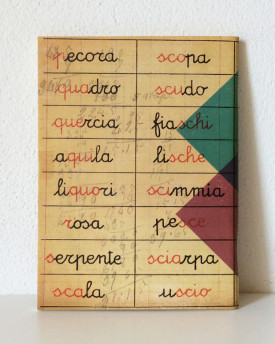 pecora scopa
quadro scudo
quercia fiaschi
aquila lische
liquori scimmia
rosa pesce
serpente sciarpa
scala uscio